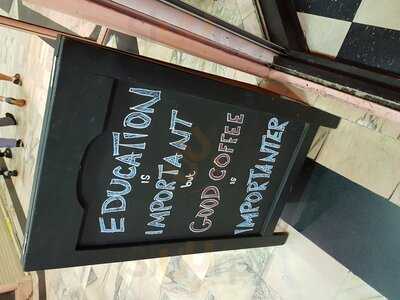 EDUCATION
IS
IMPORTANT
but
GOOD COFFEE
is
IMPORTANTER